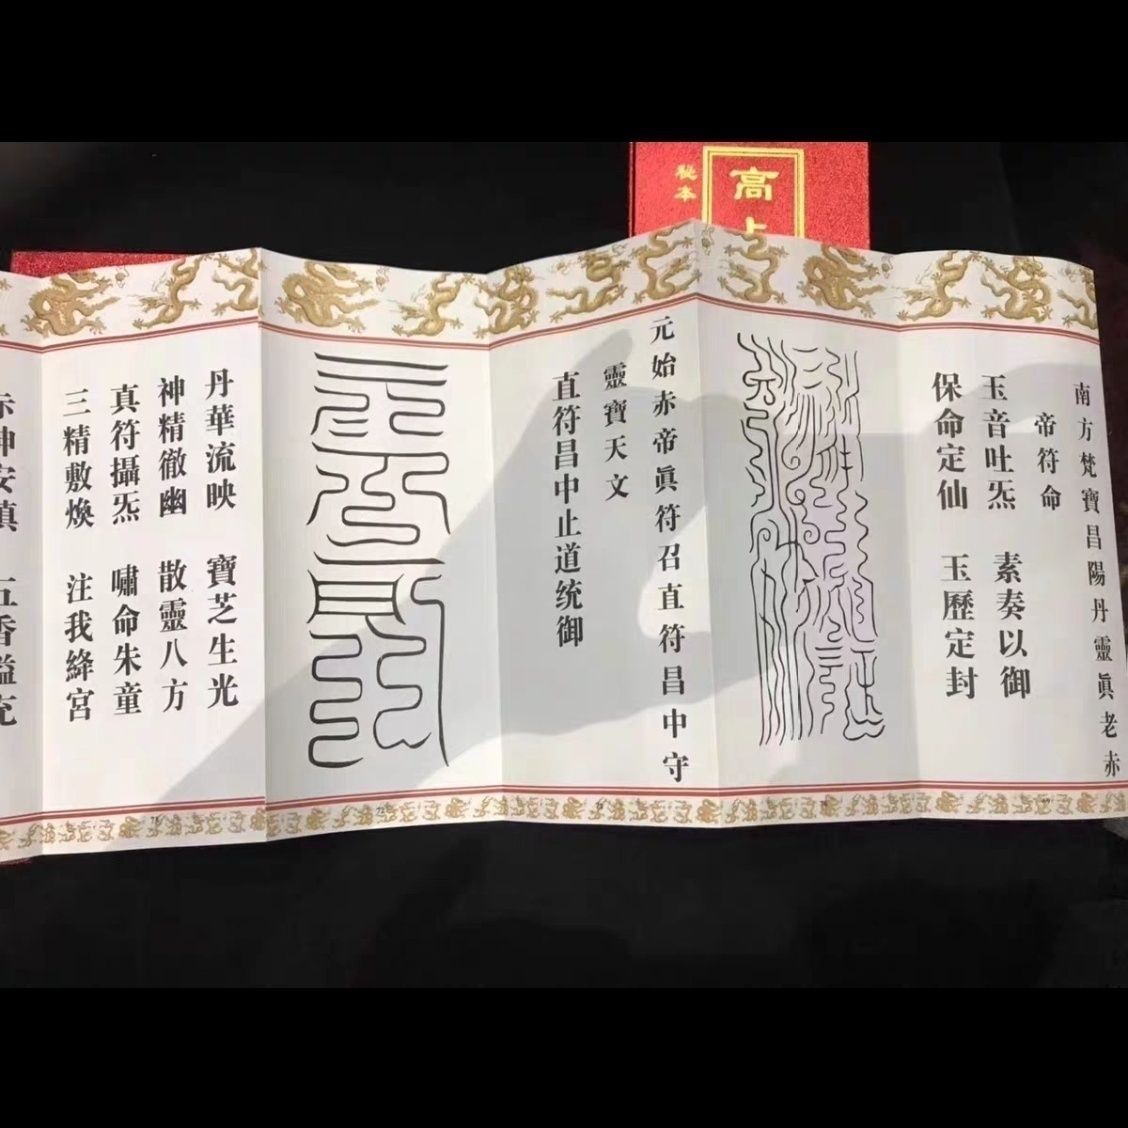 高上
秘本
南方梵寶昌陽丹靈眞老赤
帝符命
玉音吐炁 素奏以御
保命定仙 玉歷定封
元始赤帝眞符召直符昌中守
靈寶天文
直符昌中止道统御
丹華流映 寶芝生光
神精徹幽 散靈八方
真符攝炁 嘯命朱童
三精敷煥 注我絳宮
赤神安鎮 五香謚充